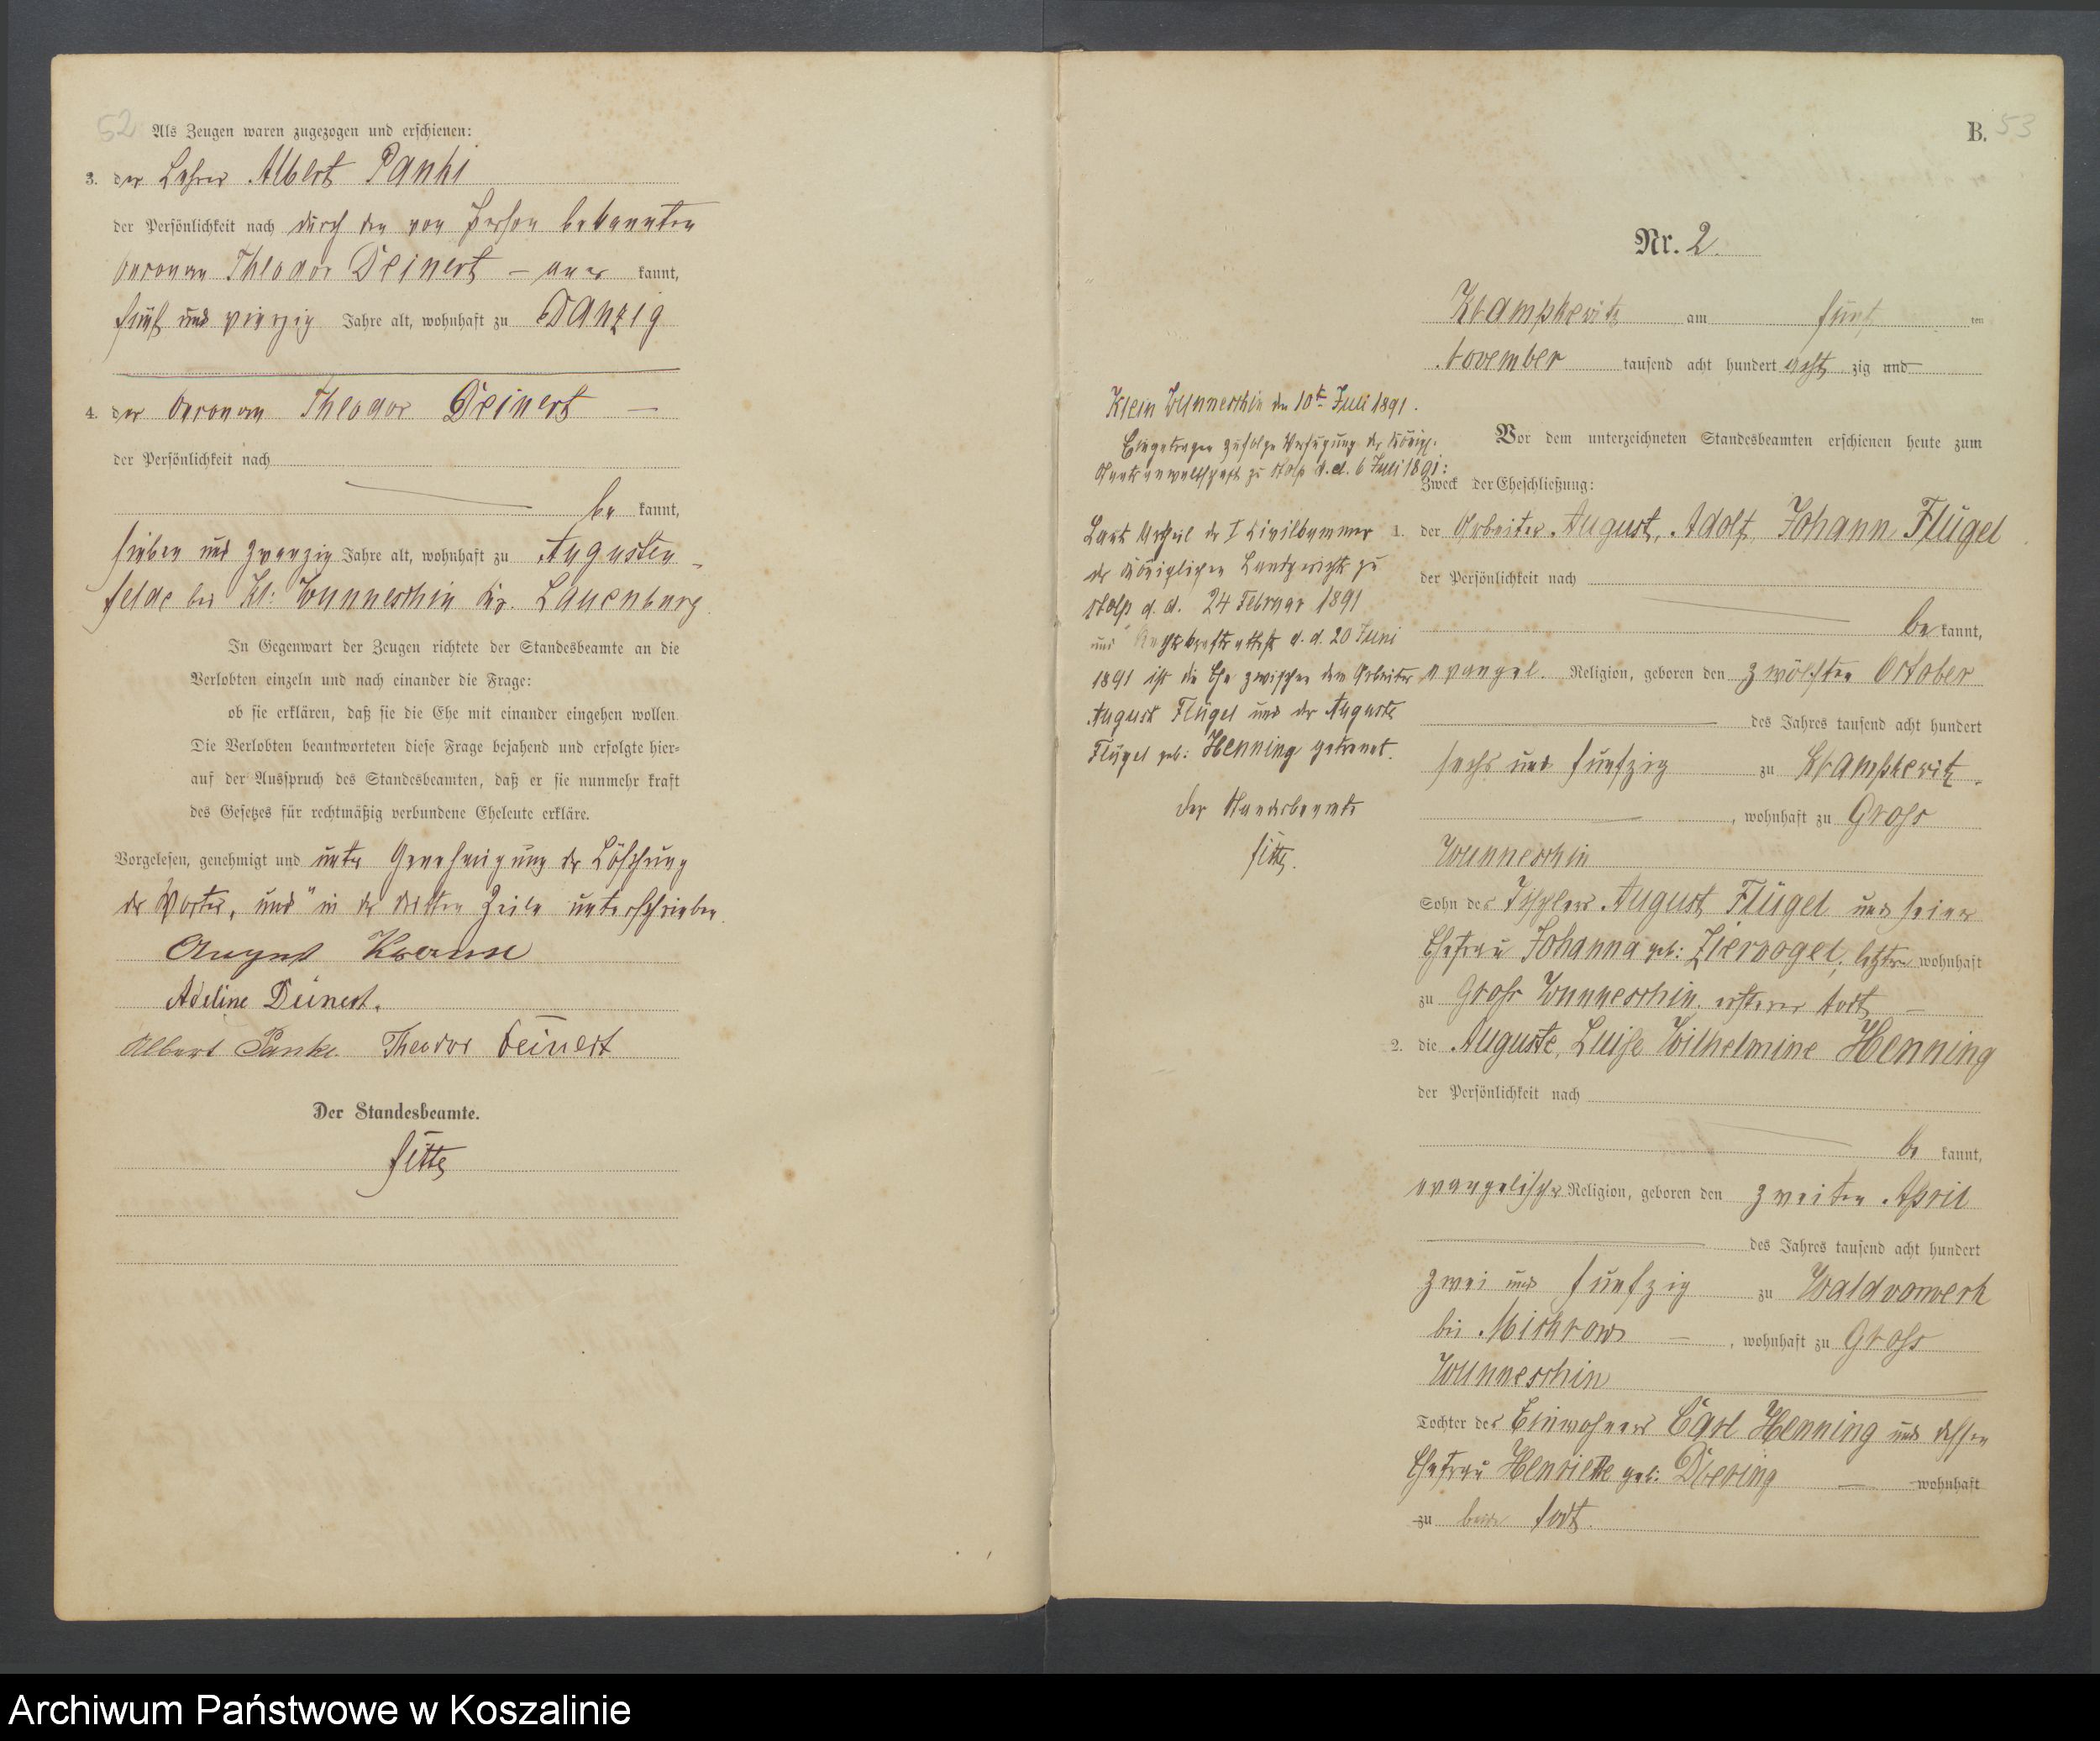 52
Als Zeugen waren zugezogen und erschienen:
3. der Lehrer Albert Panki
der Persönlichkeit nach durch den von Person bekannten
Oeconom Theodor Deinert — aner kannt,
fünf und vierzig Jahre alt, wohnhaft zu Danzig
4. der Oeconom Theodor Deinert —
der Persönlichkeit nach
be kannt,
sieben und zwanzig Jahre alt, wohnhaft zu Augusten-
felde bei Kl: Wunneschin Kr. Lauenburg.
In Gegenwart der Zeugen richtete der Standesbeamte an die
Verlobten einzeln und nach einander die Frage:
ob sie erklären, daß sie die Ehe mit einander eingehen wollen.
Die Verlobten beantworteten diese Frage bejahend und erfolgte hier-
auf der Ausspruch des Standesbeamten, daß er sie nunmehr kraft
des Gesetzes für rechtmäßig verbundene Eheleute erkläre.
Vorgelesen, genehmigt und unter Genehmigung der Löschung
des Wortes „und" in der dritten Zeile unterschrieben.
August Krause
Adeline Deinert.
Albert Panke Theodor Deinert
Der Standesbeamte.
B. 53
Nr. 2.
Krampkewitz am fünf ten
November tausend acht hundert acht zig und
Vor dem unterzeichneten Standesbeamten erschienen heute zum
Zweck der Eheschließung:
1. der Arbeiter August, Adolf, Johann Flügel
der Persönlichkeit nach
be kannt,
evangel. Religion, geboren den zwölften October
des Jahres tausend acht hundert
sechs und fünfzig zu Krampkewitz
, wohnhaft zu Gross
Wunneschin
Sohn des Tischlers August Flügel und seiner
Ehefrau Johanna geb: Ziervogel, letztere wohnhaft
zu Gross Wunneschin, ersterer todt —
2. die Auguste, Luise Wilhelmine Henning
der Persönlichkeit nach
be kannt,
evangelischer Religion, geboren den zweiten April
des Jahres tausend acht hundert
zwei und fünfzig zu Waldvorwerk
bei Mickrow — , wohnhaft zu Gross
Wunneschin
Tochter des Einwohners Carl Henning und dessen
Ehefrau Henriette geb: Doering — wohnhaft
zu beide todt.
Klein Wunneschin den 10t Juli 1891.
Eingetragen zufolge Verfügung der Königl:
Staatsanwaltschaft zu Stolp d. d. 6 Juli 1891:
Laut Urtheil der I Civilkammer
des Königlichen Landgerichts zu
Stolp d. d. 24 Februar 1891
und Rechtskraftattest d. d. 20 Juni
1891 ist die Ehe zwischen dem Arbeiter
August Flügel und der Auguste
Flügel geb: Henning getrennt.
Der Standesbeamte
Archiwum Państwowe w Koszalinie